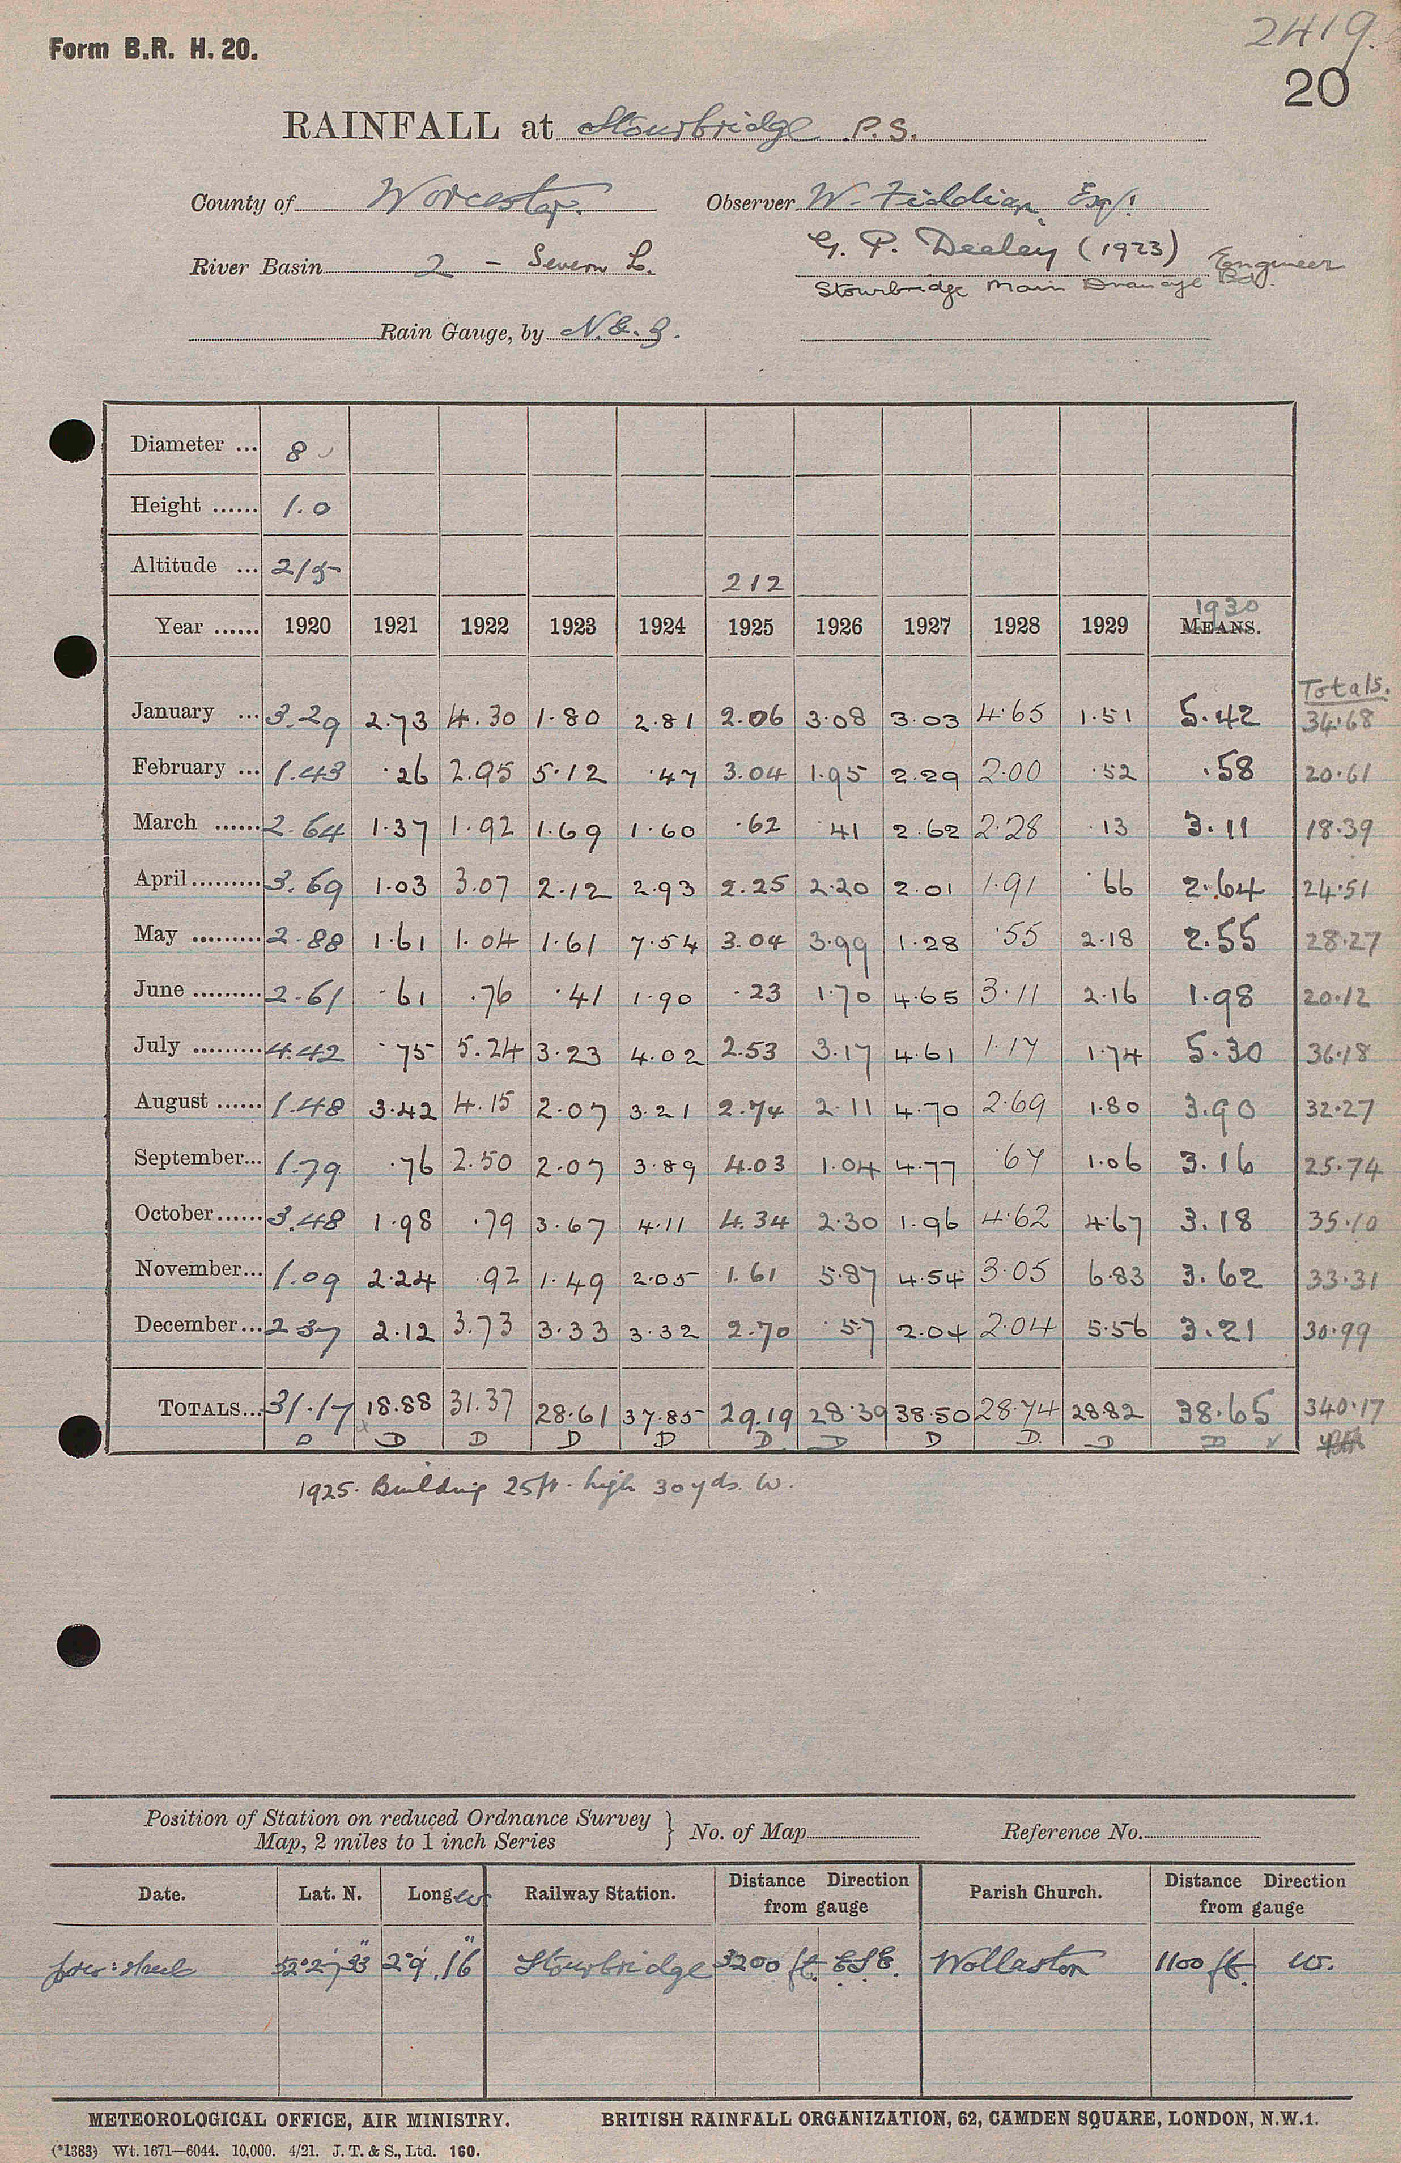 Form B.R. H. 20.
2419.
20
RAINFALL at Stourbridge P.S.
County of Worcester. Observer W. Fiddian, Esq.
G. P. Deeley (1923) Engineer
River Basin 2 - Severn L.
Stourbridge Main Drainage Bd.
Rain Gauge, by N. & Z.
Diameter ... 8
Height ...... 1.0
Altitude ... 215 212
1930
Year ...... 1920 1921 1922 1923 1924 1925 1926 1927 1928 1929 MEANS.
Totals.
January ... 3.29 2.73 4.30 1.80 2.81 2.06 3.08 3.03 4.65 1.51 5.42 34.68
February ... 1.43 .26 2.95 5.12 .47 3.04 1.95 2.29 2.00 .52 .58 20.61
March ...... 2.64 1.37 1.92 1.69 1.60 .62 .41 2.62 2.28 .13 3.11 18.39
April ......... 3.69 1.03 3.07 2.12 2.93 2.25 2.20 2.01 1.91 .66 2.64 24.51
May ......... 2.88 1.61 1.04 1.61 7.54 3.04 3.99 1.28 .55 2.18 2.55 28.27
June ......... 2.61 .61 .76 .41 1.90 .23 1.70 4.65 3.11 2.16 1.98 20.12
July ......... 4.42 .75 5.24 3.23 4.02 2.53 3.17 4.61 1.17 1.74 5.30 36.18
August ...... 1.48 3.42 4.15 2.07 3.21 2.74 2.11 4.70 2.69 1.80 3.90 32.27
September... 1.79 .76 2.50 2.07 3.89 4.03 1.04 4.77 .67 1.06 3.16 25.74
October...... 3.48 1.98 .79 3.67 4.11 4.34 2.30 1.96 4.62 4.67 3.18 35.10
November... 1.09 2.24 .92 1.49 2.05 1.61 5.87 4.54 3.05 6.83 3.62 33.31
December... 2.37 2.12 3.73 3.33 3.32 2.70 .57 2.04 2.04 5.56 3.21 30.99
TOTALS... 31.17 18.88 31.37 28.61 37.85 29.19 28.39 38.50 28.74 28.82 38.65 340.17
D D D D D D D D D. D D ✓
1925. Building 25ft. high 30yds. W.
Position of Station on reduced Ordnance Survey
Map, 2 miles to 1 inch Series } No. of Map Reference No.
Date. Lat. N. Long W Railway Station. Distance Direction from gauge Parish Church. Distance Direction from gauge
prev: sheet 52°27'33" 2°9'16" Stourbridge 3200 ft. ESE. Wollaston 1100 ft. W.
METEOROLOGICAL OFFICE, AIR MINISTRY. BRITISH RAINFALL ORGANIZATION, 62, CAMDEN SQUARE, LONDON, N.W.1.
(*1383) Wt. 1671—6044. 10,000. 4/21. J. T. & S., Ltd. 160.